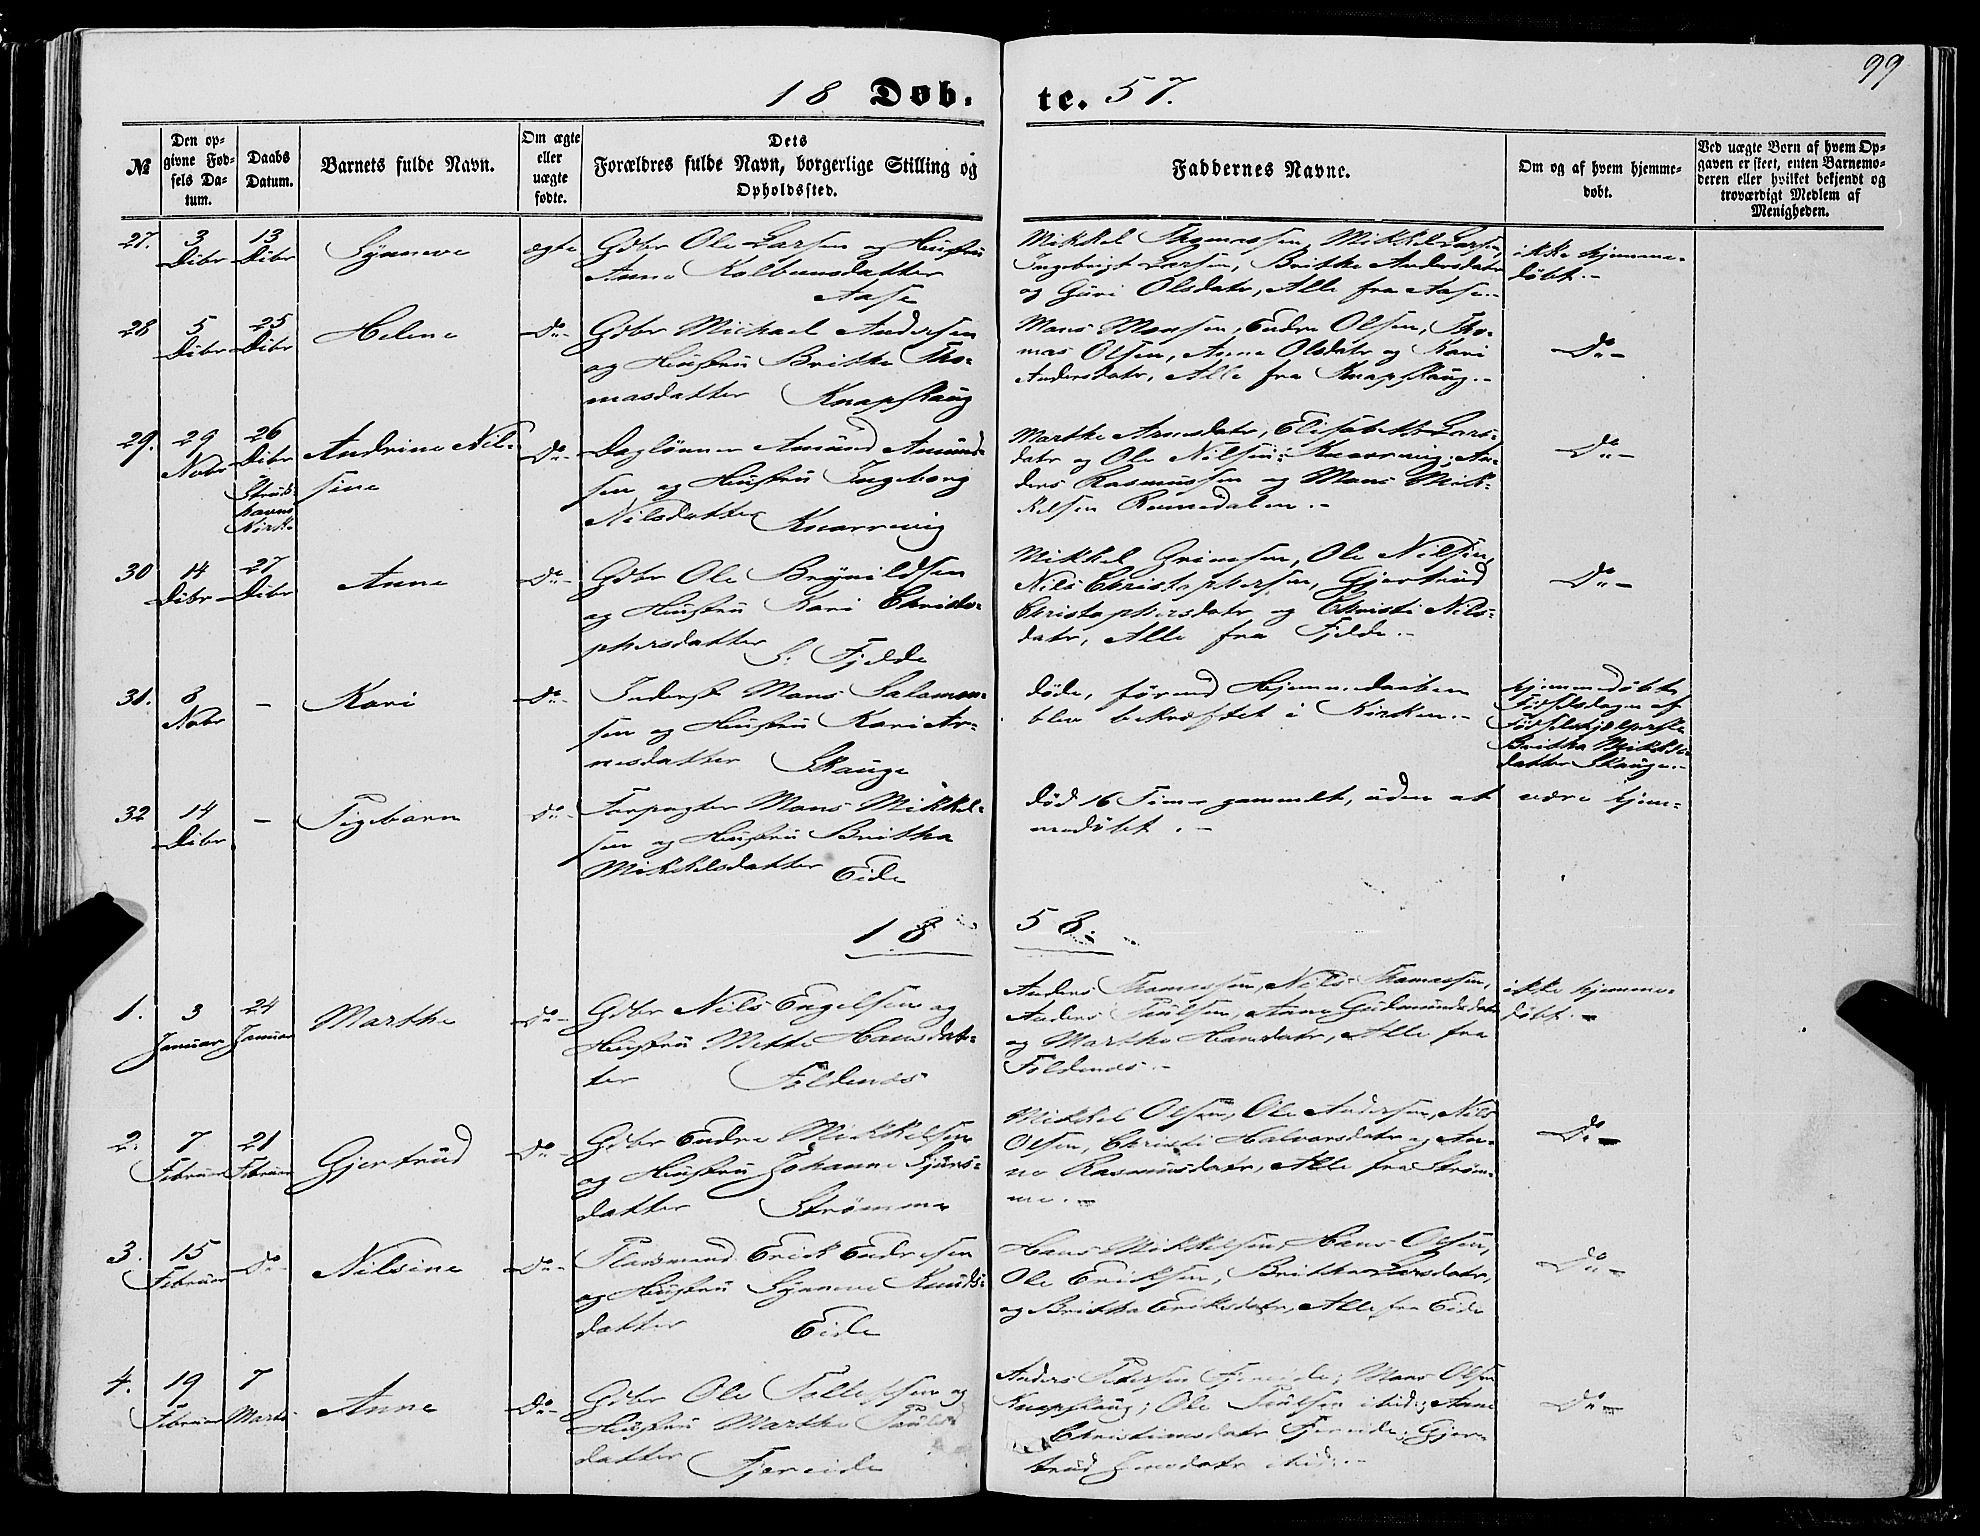 99
18 Døb. te. 57.
№
Den op-
givne Fød-
sels Da-
tum.
Daabs
Datum.
Barnets fulde Navn.
Om ægte
eller
uægte
fødte.
Dets
Forældres fulde Navn, borgerlige Stilling og
Opholdssted.
Faddernes Navne.
Om og af hvem hjemme-
døbt.
Ved uægte Børn af hvem Op-
gaven er skeet, enten Barnemo-
deren eller hvilket bekjendt og
troværdigt Medlem af
Menigheden.
27.
3
Dcbr
13
Dcbr
Synneve
ægte
Gdbr Ole Larsen og Hustru
Anna Kolbensdatter
Aase
Mikkel Thomassen, Mikkel Larsen,
Ingebrigt Larsen, Brithe Andersdatr
og Guri Olsdatr, Alle fra Aase.-
ikke hjemme-
døbt.-
28
5
Dcbr
25
Dcbr
Helene
Do-
Gdbr Michael Andersen
og Hustru Brithe Tho-
masdatter Knapskaug
Mons Monsen, Endre Olsen, Tho-
mas Olsen, Anna Olsdatr og Kari
Andersdatr, Alle fra Knapskaug.-
Do-
29.
29
Nobr
26
Dcbr
Strus-
havns
Kirke
Andrine Nil-
sine
Do-
Daglønner Amund Amund-
sen og Hustru Ingeborg
Nilsdatter Knarrevig
Marthe Arnesdatr, Elisabeth Lars-
datr og Ole Nilsen: Knarrevig; An-
ders Rasmussen og Mons Mik-
kelsen
Do-
30
14
Dcbr
27
Dcbr
Anne
Do-
Gdbr Ole Brynildsen
og Hustru Kari Christo-
phersdatter S. Fjelde
Mikkel Grimsen, Ole Nilsen,
Nils Christophersen, Gjertrud
Christophersdatr og Christi Nils-
datr, Alle fra Fjelde.-
Do-
31.
8
Nobr
-
Kari
Do-
Inderst Mons Salamon-
sen og Hustru Kari Ar-
nesdatter Skauge
døde, førend Hjemmedaaben
blev bekræftet i Kirken.-
hjemmedøbt
Fødselsdagen af
Fødselshjelperske
Britha Mikkels-
datter Skauge.-
32
14
Dcbr
-
Pigebarn
Do-
Forpagter Mons Mikkel-
sen og Hustru Britha
Mikkelsdatter Eide
død 16 Timer gammelt, uden at være hjem-
medøbt.-
18 58.
1.
3
Januar
24
Januar
Marthe
Do-
Gdbr Nils Engelsen og
Hustru Mette Hansdat-
ter Foldenes
Anders Thomassen, Nils Thomassen,
Anders Poulsen, Anna Gudmundsdatr
og Marthe Hansdatr, Alle fra
Foldenes.-
ikke hjemme-
døbt.-
2.
7
Februar
21
Februar
Gjertrud
Do-
Gdbr Endre Mikkelsen
og Hustru Johanne Sjurs-
datter Strømme
Mikkel Olsen, Ole Andersen, Nils
Olsen, Christi Halvorsdatr og An-
ne Rasmusdatr, Alle fra Strøm-
me.-
Do-
3.
15
Februar
Do-
Nilsine
Do-
Pladsmand Erick Endresen
og Hustru Synneve Knuds-
datter Eide
Hans Mikkelsen, Hans Olsen,
Ole Eriksen, Britha Larsdatr,
og Britha Eriksdatr, Alle fra Eide
Do-
4.
19
Februar
7
Marts
Anne
Do-
Gdbr Ole Tollefsen og
Hustru Marthe Pouls-
datter Fjereide
Anders Pedersen Fjereide; Mons Olsen
Knapskaug; Ole Poulsen ibid; Anne
Christiansdatr Fjereide; Gjer-
trud Jensdatr ibid.-
Do-